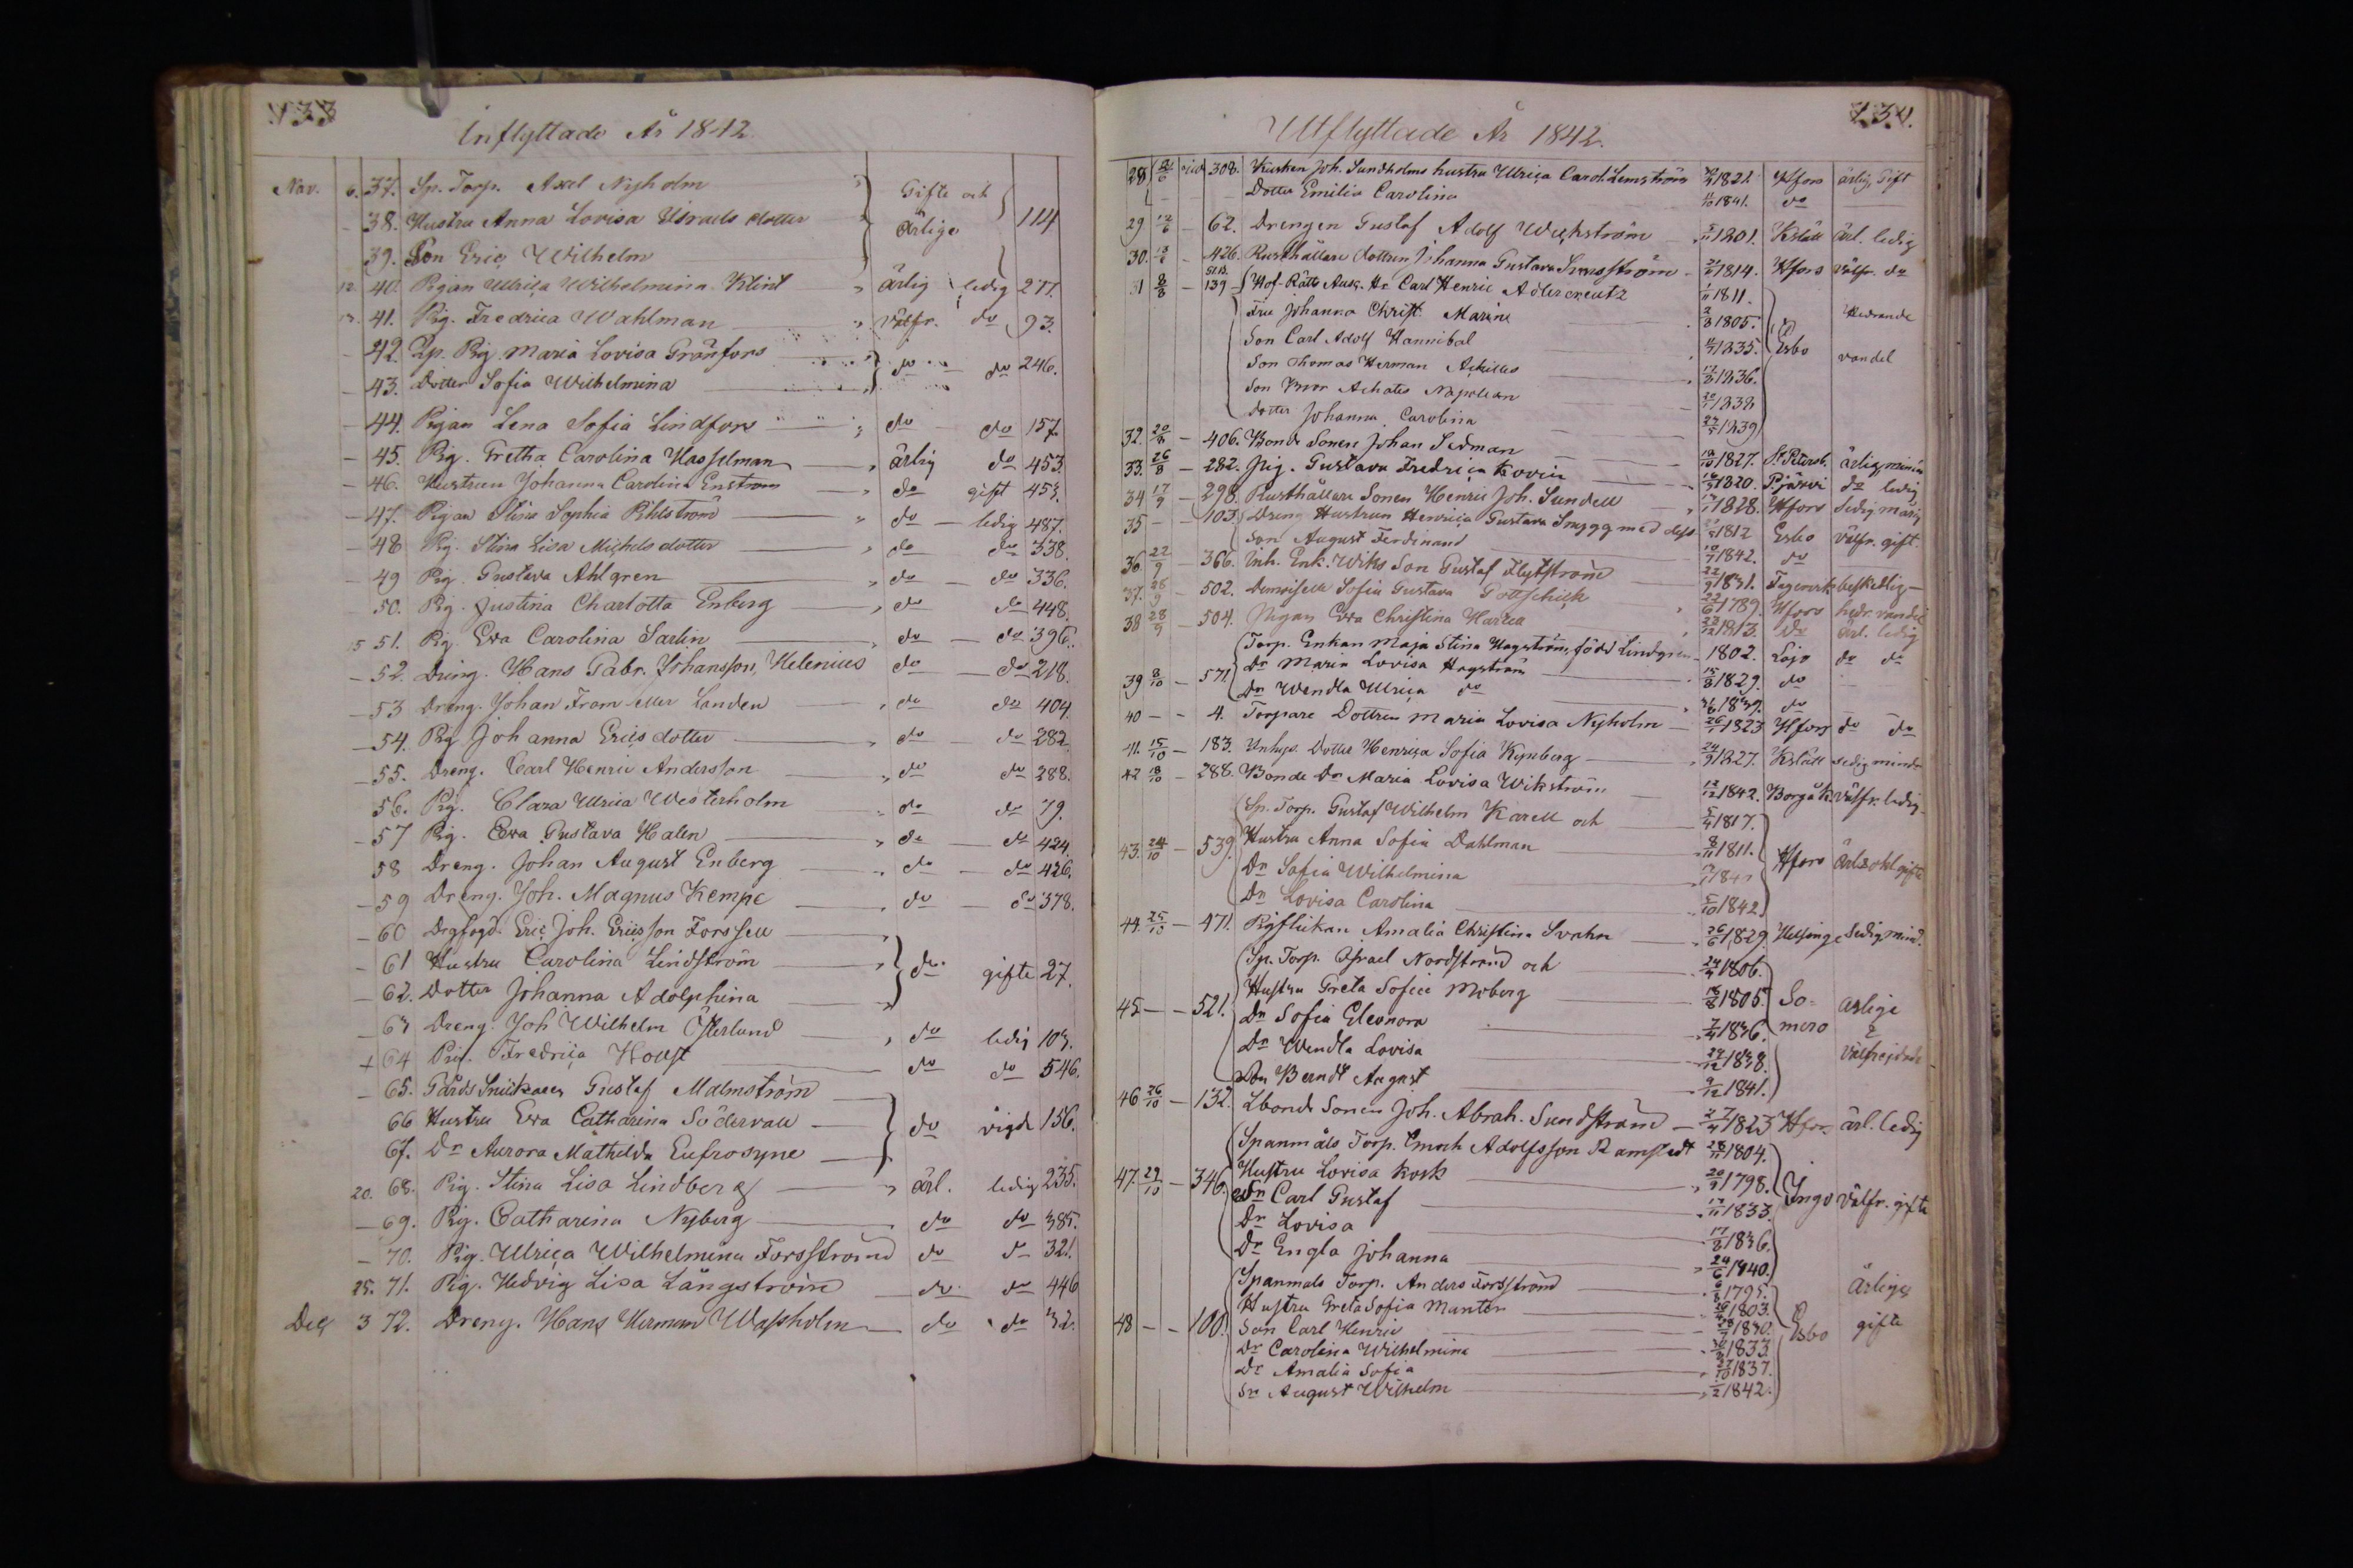 133
Inflyttade År 1842.
Nov. 6. 37. Sp. Torp. Axel Nyholm Gifte och
- 38. Hustru Anna Lovisa Israels dotter ärlige 114
39. Son Eric Wilhelm
12 40. Pigan Ulrica Wilhelmina Klint ärlig ledig 277.
13. 41. Pig. Fredrica Wahlman välfr. do 93.
- 42. Pig. Maria Lovisa Grönfors do do 246.
- 43. Dotter Sofia Wilhelmina
- 44. Pigan Lena Sofia Lindfors do do 157
- 45. Pig. Gretha Carolina Hasselman ärlig do 453.
- 46. Hustrun Johanna Carolina Enström do gift 453.
- 47. Pigan Stina Sophia Pihlström do - ledig 487.
- 48 Pig. Stina Lisa Michelsdotter do do 338.
- 49 Pig. Gustava Ahlgren do - do 336.
50. Pig. Justina Charlotta Enberg do do 448.
15 51. Pig. Eva Carolina Sarlin do - do 396.
- 52. Dräng. Hans Gabr. Johansson, Helenius do - do 218.
- 53 Dräng. Johan From eller Landen do do 404.
- 54. Pig Johanna Ericsdotter do - do 282.
- 55. Dreng. Carl Henric Andersson do do 288.
56. Pig. Clara Ulrica Westerholm do do 79.
- 57 Pig. Eva Gustava Halen do - do 424.
58 Dreng. Johan August Enberg do - do 426.
- 59 Dreng. Joh. Magnus Kempe do - do 378.
- 60 Drgfogd. Eric Joh. Ericsson Forssell
- 61 Hustru Carolina Lindström do gifte 27.
- 62. Dotter Johanna Adolphina
- 63 Dreng. Joh Wilhelm Österlund do ledig 103.
+ 64 Pig. Fredrica Holst do do 546.
- 65. Gårds Snickaren Gustaf Malmström
66 Hustru Eva Catharina Södervall do vigde 156.
67. Dr Aurora Mathilda Eufrosyne
20. 68. Pig. Stina Lisa Lindberg ärl. ledig 235.
- 69. Pig. Catharina Nyberg do do 385.
- 70. Pig. Ulrica Wilhelmina Forsström do do 321.
25. 71. Pig. Hedvig Lisa Långström do do 446
Dec 3 72. Dreng. Hans Herman Wassholm do do 32.
134.
Utflyttade År 1842.
28 308. Kusken Joh. Sundholms hustru Ulrica Carol. Lemström 1821. Hfors ärlig, Gift
Dotter Emilia Carolina 1841. do
29 12/6 - 62. Drengen Gustaf Adolf Weckström 1801. Kslätt ärl. ledig
30. - 426. Rusthållare dottren Johanna Gustava 1814. Hfors välfr. do
31 8/8 - 139 Hof-Rätts Ausc. Hr Carl Henric Adlercreutz 1811.
Fru Johanna Christ. Marine 1805. Hedrande
Son Carl Adolf Hannibal 1835. Esbo vandel
Son Thomas Herman Achilles 1836.
Son Achates Napolean 1838
dotter Johanna Carolina 1839
32. 20/8 - 406. Bonde Sonen Johan Sedman 1827. St. Petersb. ärlig, minder
33. 26/8 - 282. Pig. Gustava Fredrica 1820. P.järvi do ledig
34 17/9 - 298. Rusthållare Sonen Henric Joh. Sundell 1828. Hfors sedig
35 - - 103. Dreng Hustrun Henrica Gustava Snygg med dess 1812 Esbo välfr. gift.
Son August Ferdinand 1842. do
36 22/9 - 366. Inh. Enk. Wiks Son Gustaf Flytström 1831. beskedlig -
37. 28/9 - 502. Demoiselle Sofia Gustava Gottschick 1789. Hfors hedr. vandel
38 28/9 - 504. Pigan Eva Christina 1813. do ärl. ledig
Torp. Enkan Maja Stina Hagström, född Lindgren 1802. Lojo do do
39 8/10 - 571 Dr Maria Lovisa Hagström 1829. do
Dr Wendla Ulrica do 1839. do
40 - - 4. Torpare Dottren Maria Lovisa Nyholm 1823 Hfors do do
41. 15/10 - 183. Inhys. Dotter Henrica Sofia Kynberg 1827. Kslätt sedig minder
42 18/10 - 288. Bonde Dr Maria Lovisa Wikström 1842. Borgå k. välfr. ledig
Sp. Torp. Gustaf Wilhelm Karell och 1817.
43. 24/10 - 539. Hustru Anna Sofia Dahlman 1811. Hfors gifte
Dr Sofia Wilhelmina
Dr Lovisa Carolina 1842
44. 25/10 - 471. Pigflickan Amalia Christina Svahn 1829 Helsinge sedig mind.
Sp. Torp. Israel Nordström och 1806.
Hustru Greta Sofia Moberg 1805. So-
45 - - 521. Dr Sofia Eleonora 1836. mero ärlige
Dr Wendla Lovisa 1838. & välfrejdade
Sn Berndt August 1841.
46 26/10 - 132. Lbonde Sonen Joh. Abrah. Sundström 1823 Hfors ärl. ledig
Spanmåls Torp. Enoch Adolfsson Ramstedt 1804.
47. 29/10 - 346. Hustru Lovisa Kock 1798. Ingo välfr. gifte
Sn Carl Gustaf 1833.
Dr Lovisa 1836.
Dr Engla Johanna 1840.
Spanmåls Torp. Anders Forsström 1795. Ärliga
Hustru Greta Sofia Munter 1803.
48 - - 100. Son Carl Henric 1830. Esbo gifte
Dr Carolina Wilhelmina 1833.
Dr Amalia Sofia 1837.
Sn August Wilhelm 1842.